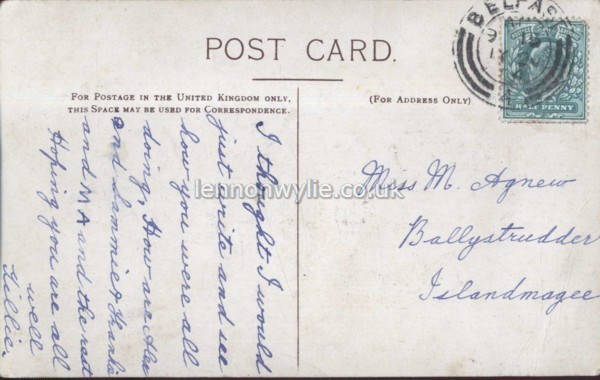 POST CARD.
FOR POSTAGE IN THE UNITED KINGDOM ONLY,
THIS SPACE MAY BE USED FOR CORRESPONDENCE.
(FOR ADDRESS ONLY)
BELFAS
HALF PENNY
I thought I would
just write and see
how you were all
doing, How are Alec
and Sammie & Frankie
and M A and the rest
Hoping you are all
well
Lillie.
Miss M. Agnew
Ballystrudder
Islandmagee
lennonwylie.co.uk